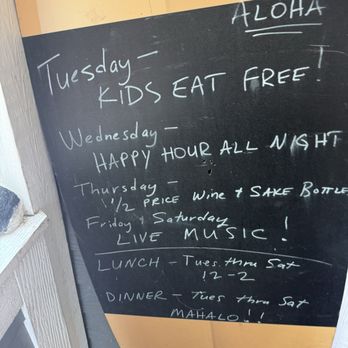 ALOHA
Tuesday –
KIDS EAT FREE!
Wednesday –
HAPPY HOUR ALL NIGHT
Thursday –
1/2 PRICE Wine + SAKE BOTTLE
Friday + Saturday
LIVE MUSIC!
LUNCH – Tues. thru Sat
12-2
DINNER – Tues thru Sat
MAHALO!!